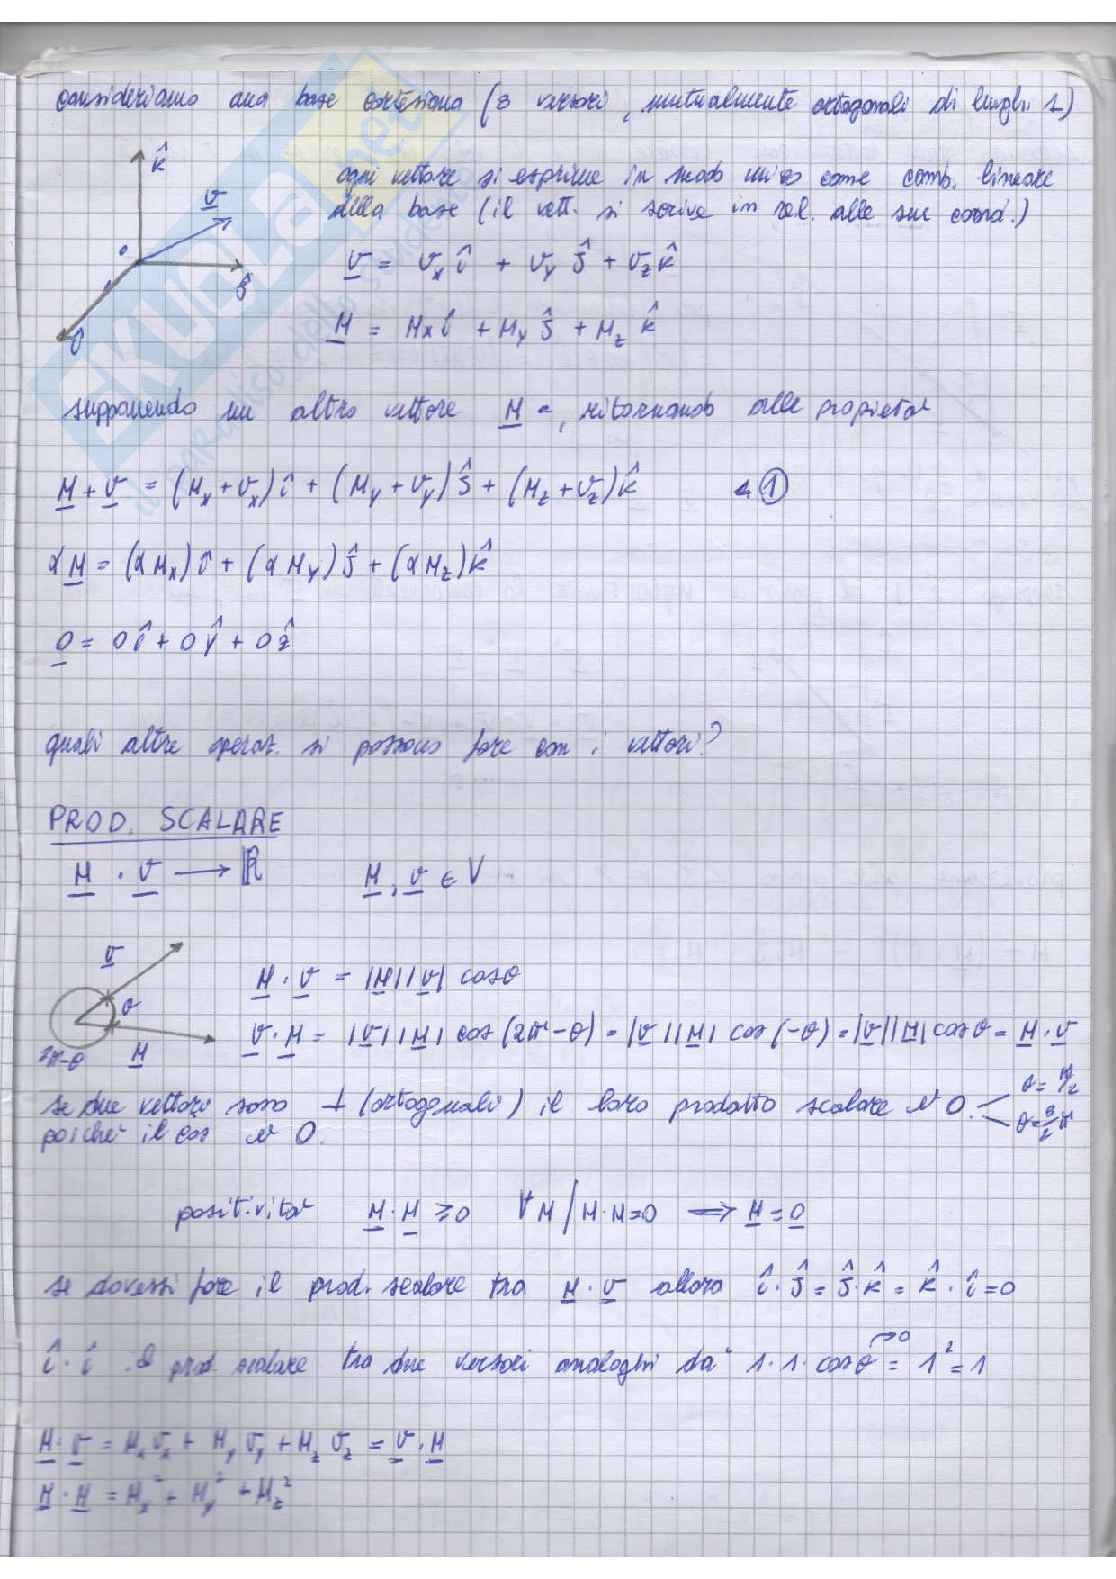 consideriamo una base cartesiana (3 versori, mutualmente ortogonali di lungh. 1)
k̂
v
o
ĵ
î
ogni vettore si esprime in modo unico come comb. lineare
della base (il vett. si scrive in rel. alle sue coord.)
v = vₓ î + v_y ĵ + v_z k̂
u = uₓ î + u_y ĵ + u_z k̂
supponendo un altro vettore u =, ritornando alle proprietà
u + v = (uₓ + vₓ) î + (u_y + v_y) ĵ + (u_z + v_z) k̂ ①
α u = (α uₓ) î + (α u_y) ĵ + (α u_z) k̂
0 = 0 î + 0 ŷ + 0 ẑ
quali altre operaz. si possono fare con i vettori?
PROD. SCALARE
u · v → ℝ u, v ∈ V
v
θ
2π-θ
u
u · v = |u| |v| cosθ
v · u = |v| |u| cos (2π - θ) = |v| |u| cos (-θ) = |v| |u| cosθ = u · v
se due vettori sono ⊥ (ortogonali) il loro prodotto scalare è 0. θ = π/2
poiché il cos è 0. θ = 3/2 π
positività u · u ≥ 0 ∀ u / u · u = 0 ⟹ u = 0
se dovessi fare il prod. scalare tra u · v allora î · ĵ = ĵ · k̂ = k̂ · î = 0
î · î il prod. scalare tra due versori analoghi dà 1 · 1 · cosθ → 0 = 1² = 1
u · v = uₓ vₓ + u_y v_y + u_z v_z = v · u
u · u = uₓ² + u_y² + u_z²